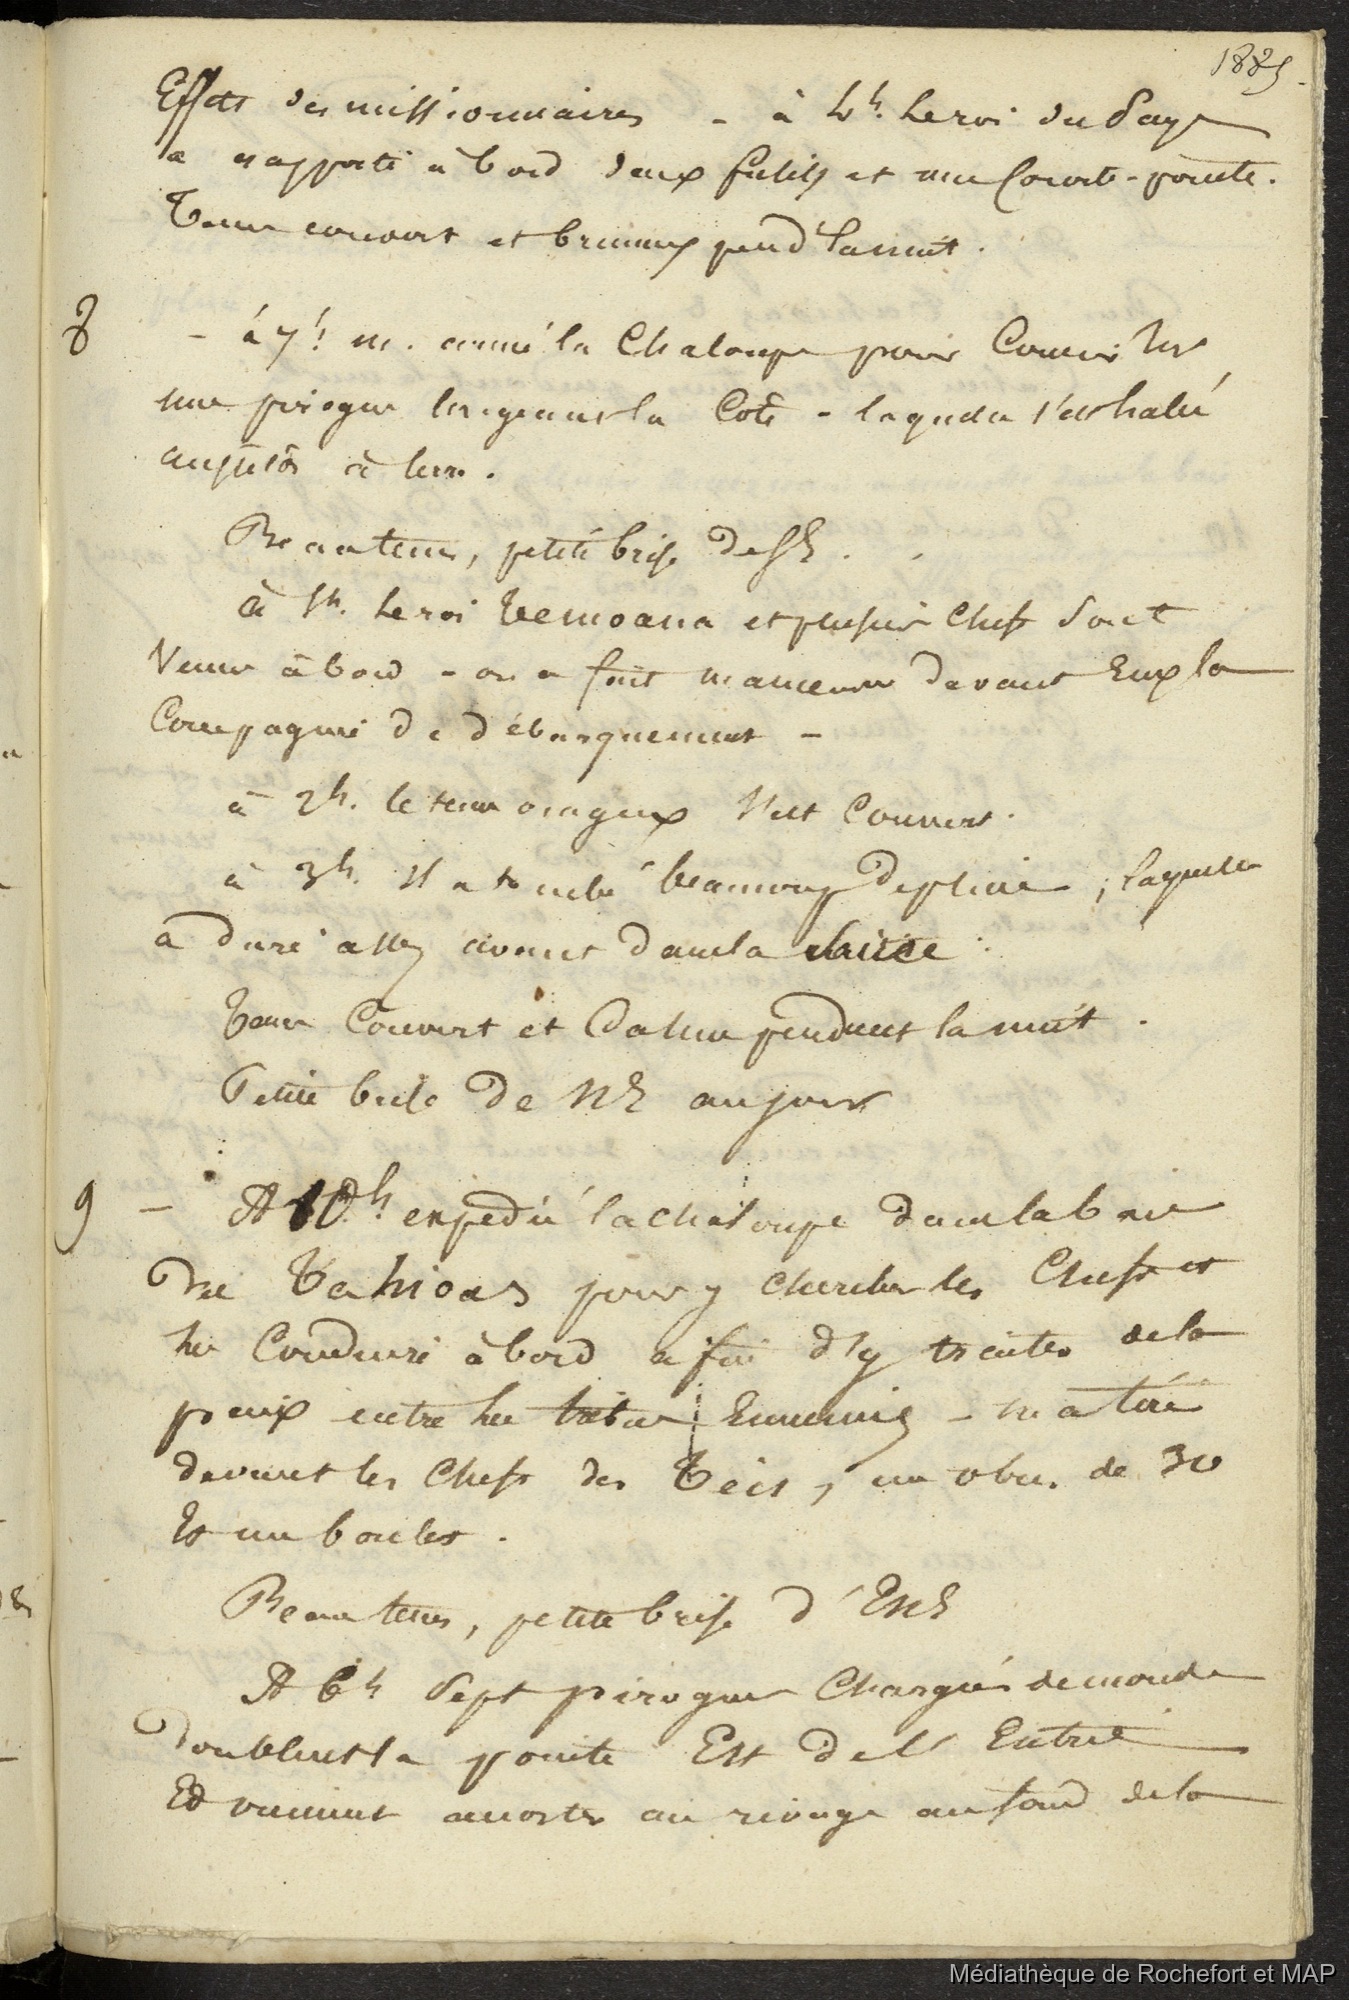 1885
Effets des missionnaires - à 4h. le roi du Pays
a rapporté à bord deux fusils et une Courte-pointe.
Tems couvert et brumeux pend la nuit.
8 - à 7h. m. armé la Chaloupe pour Courir sur
une pirogue longeant la Côte - laquelle s'est halée
aussitôt à terre.
Beau tems, petite brise de SE.
à 1h. le roi Temoana et plusieurs Chefs Sont
Venus à bord - on a fait manœuvrer devant Eux la
Compagnie de débarquement -
à 2h. le tems orageux s'est Couvert.
à 3h. Il a tombé beaucoup de pluie, laquelle
a duré assez avant dans la
Tems Couvert et Calme pendant la nuit.
Petite brise de NE au jour
9 - A 10h. expédié la chaloupe dans la baie
des Tahioas pour y chercher les Chefs et
les Conduire à bord afin d'y traiter de la
paix entre les tribus Ennemies - on a tiré
devant les Chefs des Teïs, un obus de 30
Et un boulet.
Beau tems, petite brise d'ENE
A 6h Sept pirogues Chargées de monde
doublent la pointe Est de l'Entrée
Et viennent accoster au rivage au fond de la
Médiathèque de Rochefort et MAP